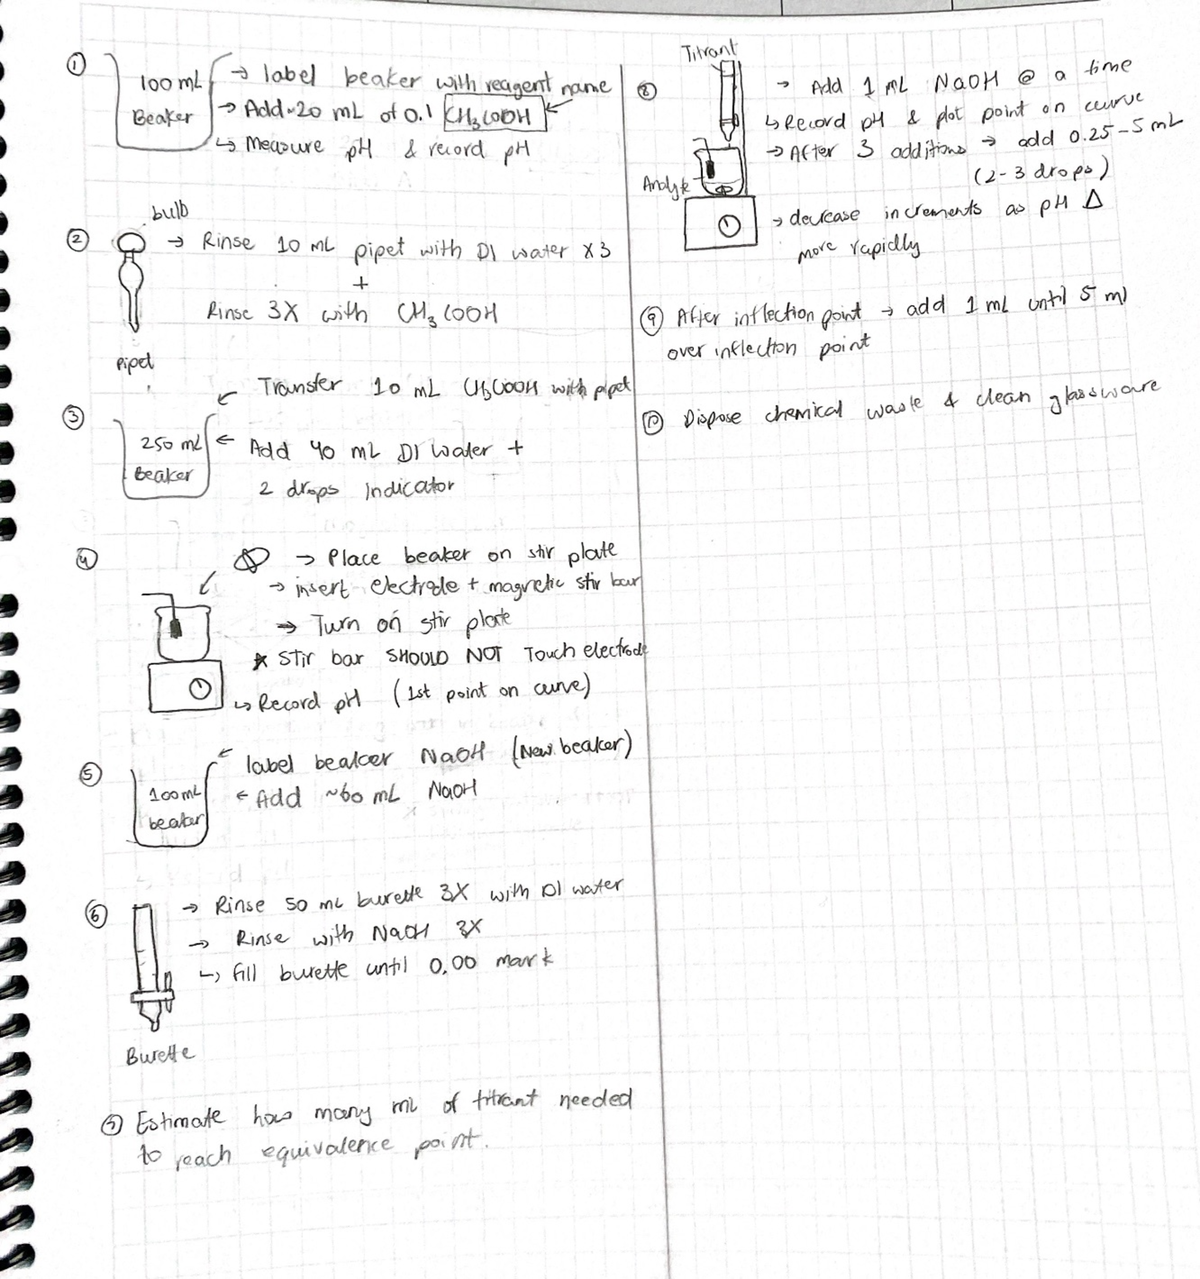 ① 100 mL Beaker
→ label beaker with reagent name
→ Add ~20 mL of 0.1 CH₃COOH
↳ Measure pH & record pH
② bulb
→ Rinse 10 mL pipet with DI water X3
+
Rinse 3X with CH₃COOH
Pipet
③ 250 mL Beaker
Transfer 10 mL CH₃COOH with pipet
← Add 40 mL DI water +
2 drops Indicator
④ → Place beaker on stir plate
→ insert electrode + magnetic stir bar
→ Turn on stir plate
* Stir bar SHOULD NOT Touch electrode
↳ Record pH (1st point on curve)
⑤ 100 mL beaker
label beaker NaOH (New beaker)
← Add ~60 mL NaOH
⑥ → Rinse 50 mL burette 3X with DI water
→ Rinse with NaOH 3X
↳ fill burette until 0.00 mark
Burette
⑦ Estimate how many mL of titrant needed
to reach equivalence point.
⑧ Titrant
Analyte
→ Add 1 mL NaOH @ a time
↳ Record pH & plot point on curve
→ After 3 additions → add 0.25-5 mL
(2-3 drops)
→ decrease increments as pH Δ
more rapidly
⑨ After inflection point → add 1 mL until 5 ml
over inflection point
⑩ Dispose chemical waste & clean glassware